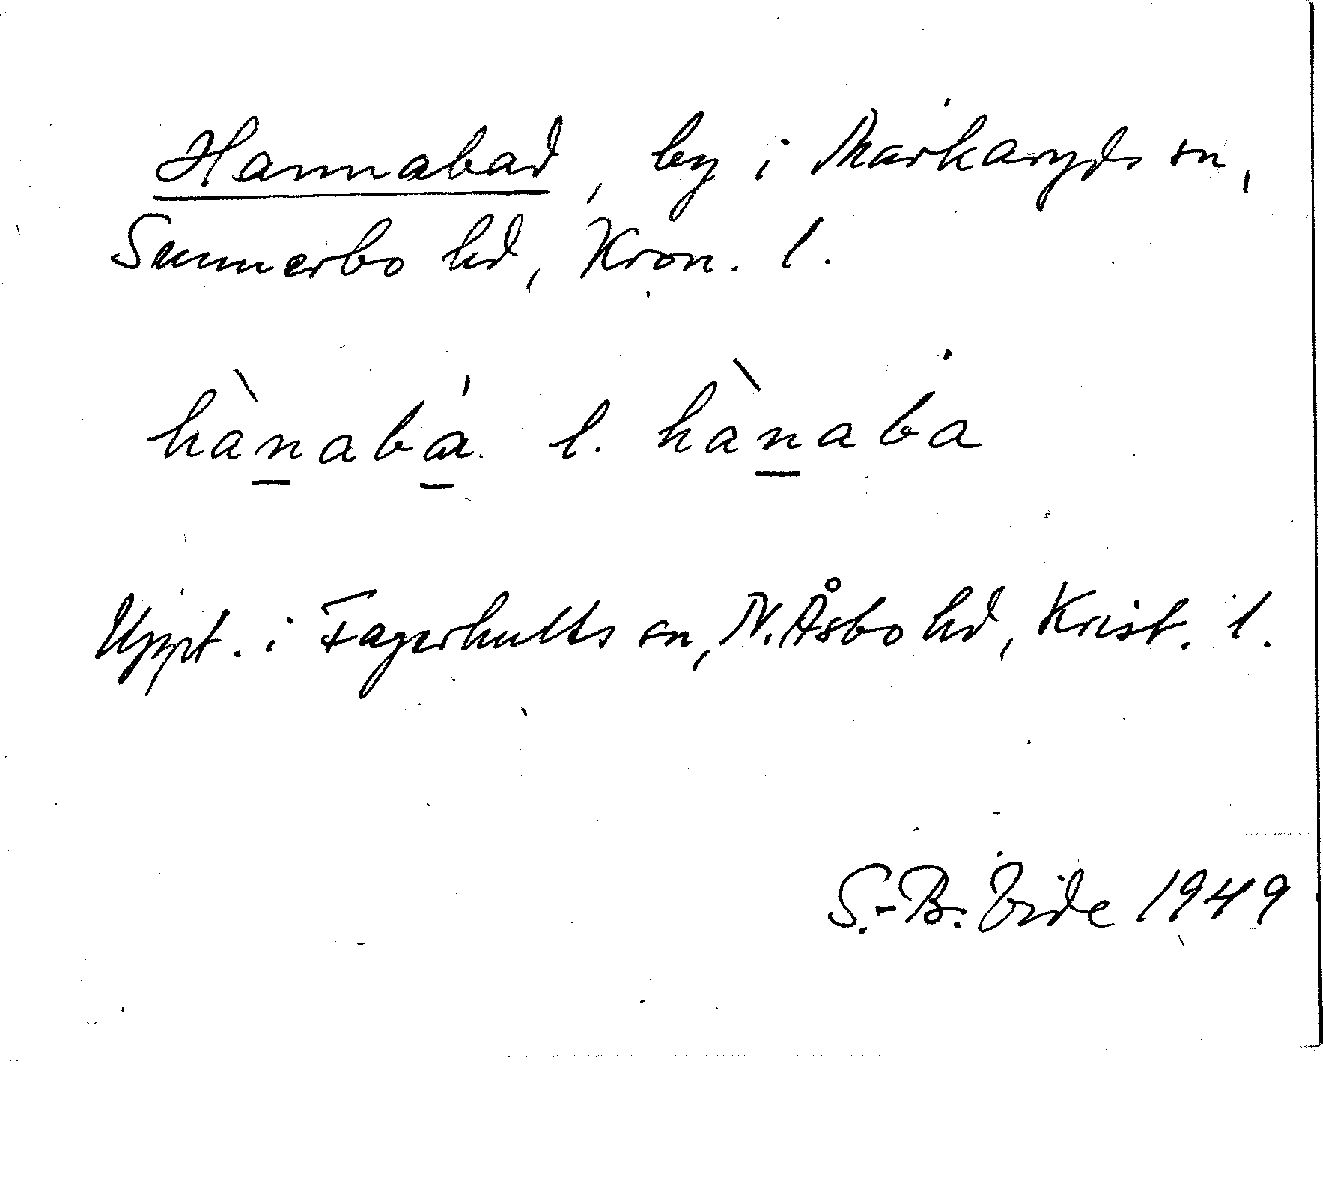 Hannabad, by i Markaryds sn,
Sunnerbo hd, Kron. l.
hànabá. l. hànaba
Uppt. i Fagerhults sn, N. Åsbo hd, Krist. l.
S.-B. Vide 1949